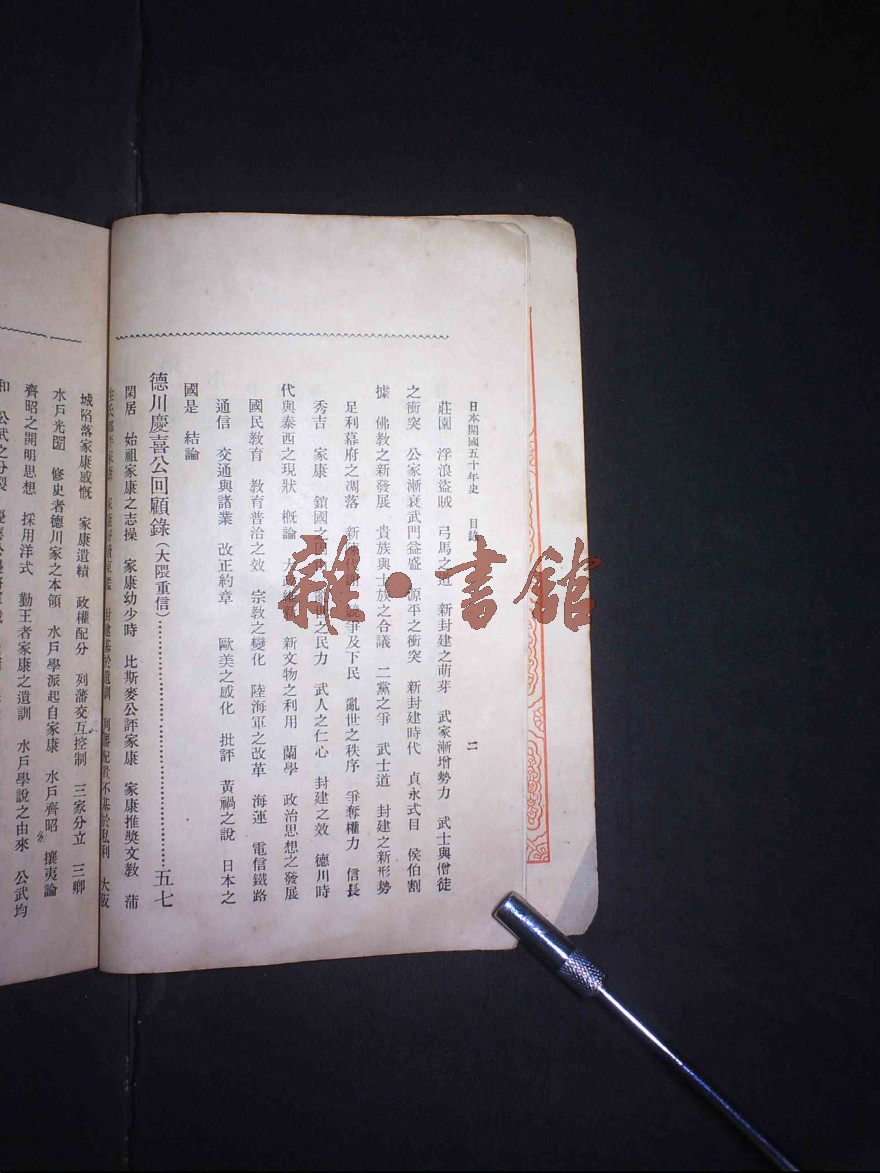 日本開國五十年史 目錄 二
莊園 浮浪盜賊 弓馬之道 新封建之萌芽 武家漸增勢力 武士與僧徒
之衝突 公家漸衰武門益盛 源平之衝突 新封建時代 貞永式目 侯伯割
據 佛敎之新發展 貴族與士族之合議 二黨之爭 武士道 封建之新形勢
足利幕府之凋落 爭及下民 亂世之秩序 爭奪權力 信長
秀吉 家康 鎖國之 世之民力 武人之仁心 封建之效 德川時
代與泰西之現狀 槪論 新文物之利用 蘭學 政治思想之發展
國民敎育 敎育普洽之效 宗敎之變化 陸海軍之改革 海運 電信鐵路
通信 交通與諸業 改正約章 歐美之感化 批評 黃禍之說 日本之
國是 結論
德川慶喜公回顧錄(大隈重信)……五七
閑居 始祖家康之志操 家康幼少時 比斯麥公評家康 家康推奬文敎 蒲
封建基於遺訓 列藩配置不基於私利 大阪
城陷落家康感慨 家康遺績 政權配分 列藩交互控制 三家分立 三卿
水戶光圀 修史者德川家之本領 水戶學派起自家康 水戶齊昭 攘夷論
齊昭之開明思想 採用洋式 勤王者家康之遺訓 水戶學說之由來 公武均
和 公武之分裂
雜·書館